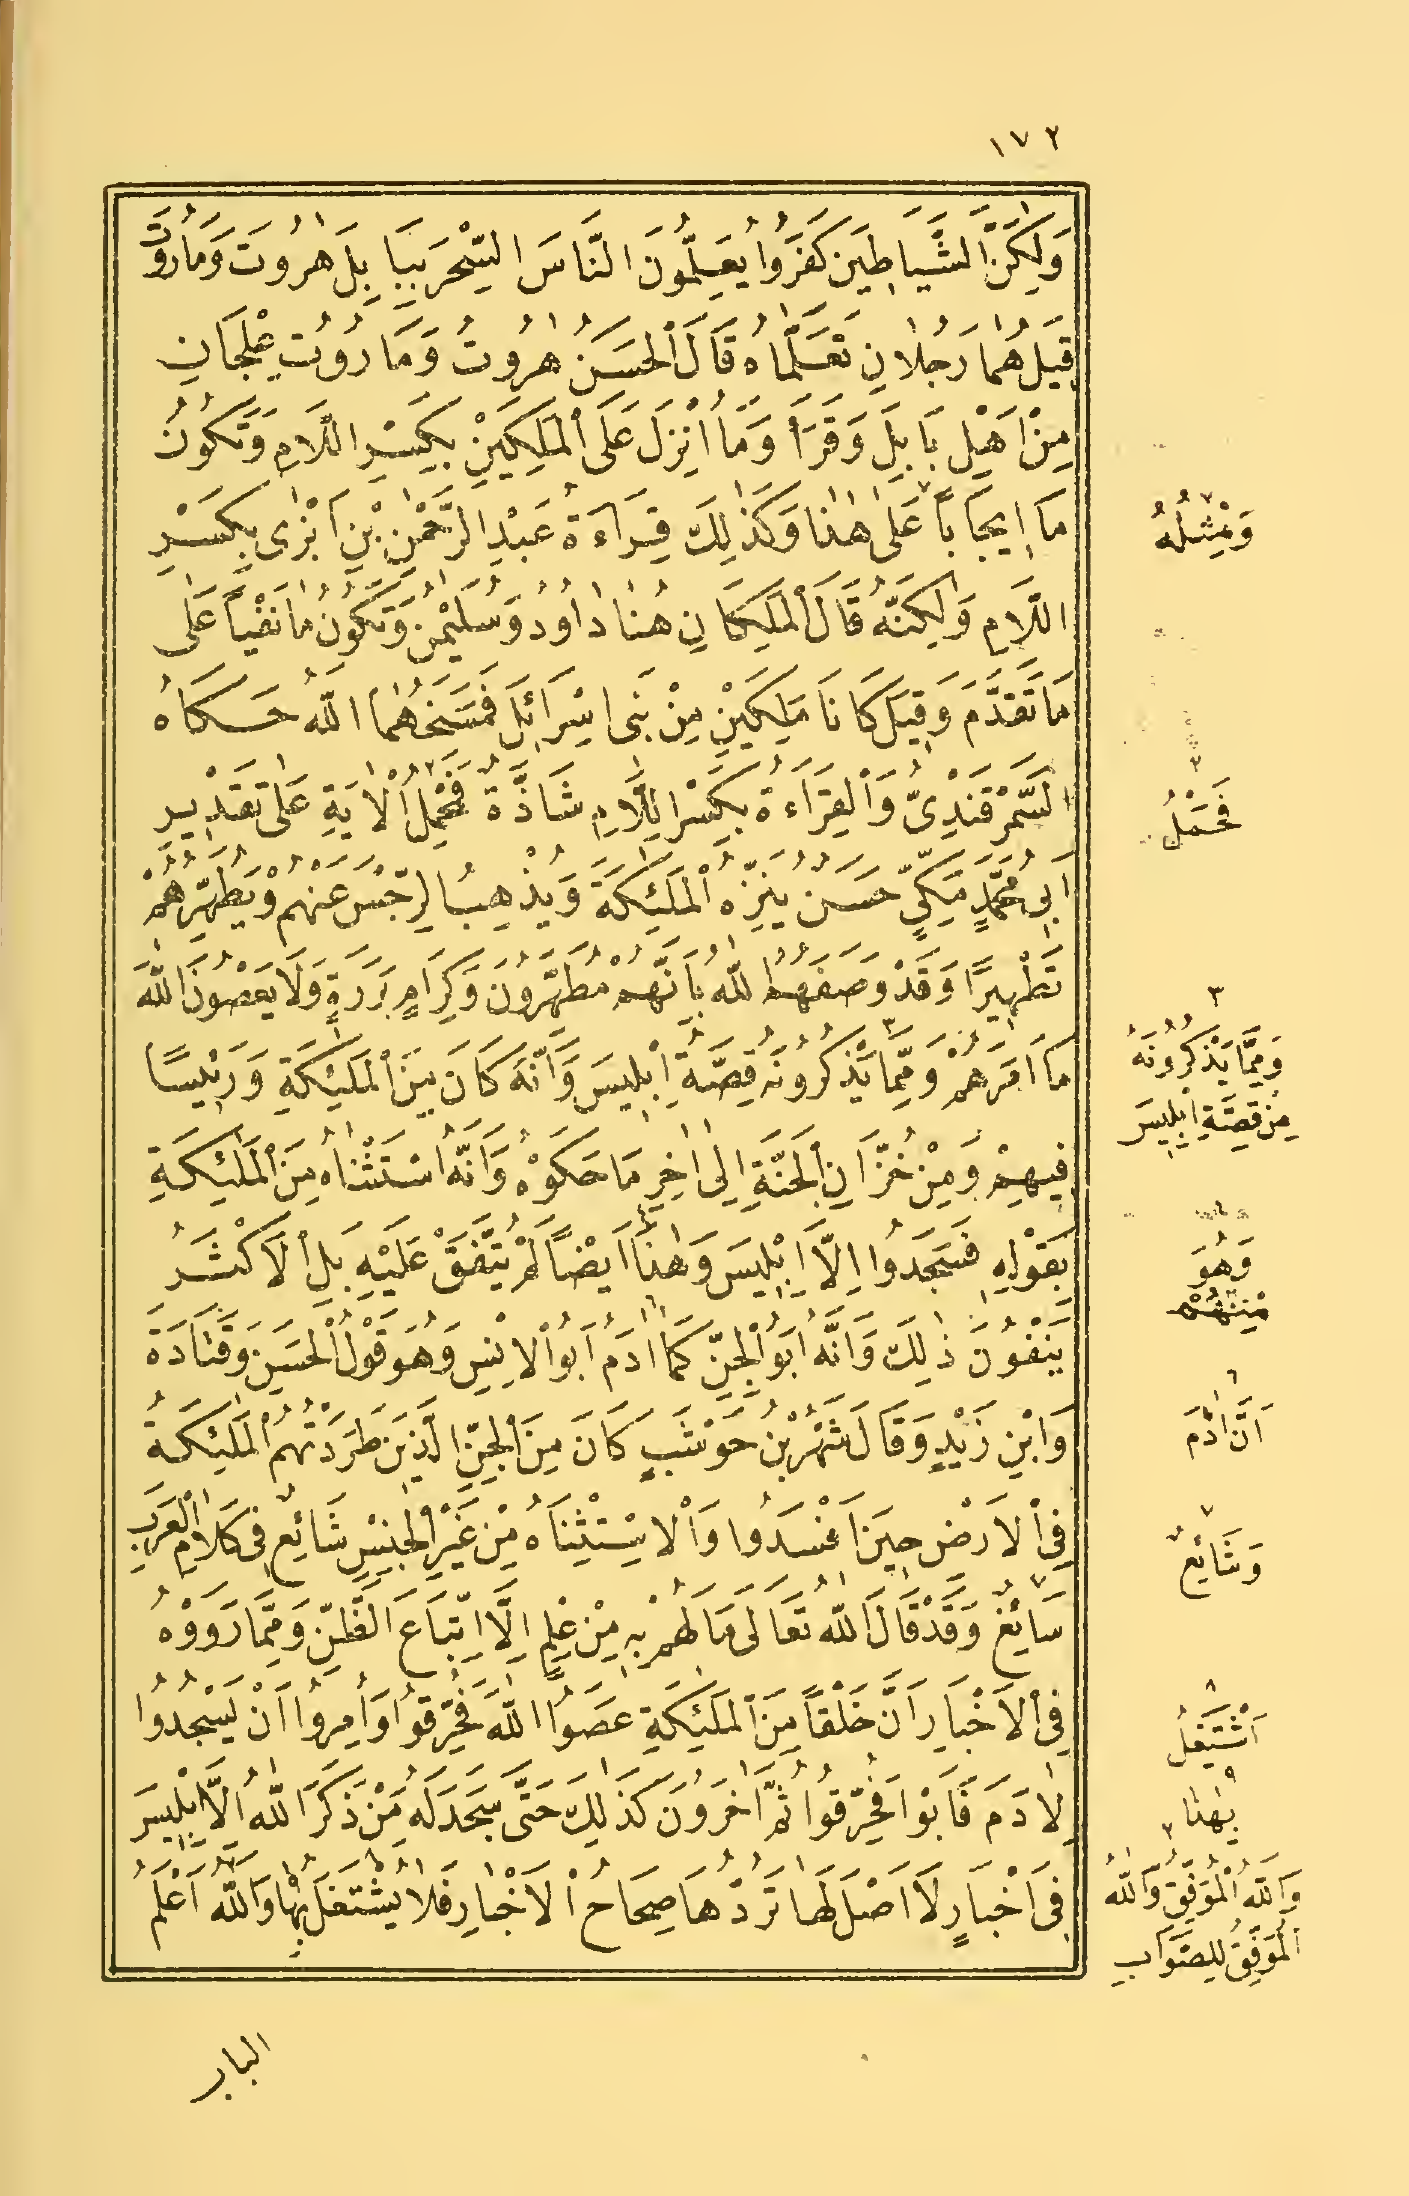 ١٧٢
وَلٰكِنَّ الشَّيَاطِينَ كَفَرُوا يُعَلِّمُونَ النَّاسَ السِّحْرَ بِبَابِلَ هٰرُوتَ وَمَارُوتَ
قِيلَ هُمَا رَجُلَانِ تَعَلَّمَاهُ قَالَ الْحَسَنُ هٰرُوتُ وَمَارُوتُ عِلْجَانِ
مِنْ اَهْلِ بَابِلَ وَقَرَأَ وَمَا اُنْزِلَ عَلَى الْمَلِكَيْنِ بِكَسْرِ اللَّامِ وَتَكُونُ
مَا اِيجَابًا عَلٰى هٰذَا وَكَذٰلِكَ قِرَاءَةُ عَبْدِ الرَّحْمٰنِ بْنِ اَبْزٰى بِكَسْرِ
اللَّامِ وَلٰكِنَّهُ قَالَ الْمَلِكَانِ هُنَا دَاوُدُ وَسُلَيْمٰنُ وَتَكُونُ مَا نَفْيًا عَلٰى
مَا تَقَدَّمَ وَقِيلَ كَانَا مَلِكَيْنِ مِنْ بَنِى اِسْرَائِلَ فَمَسَخَهُمَا اللّٰهُ حَكَاهُ
السَّمَرْقَنْدِىُّ وَالْقِرَاءَةُ بِكَسْرِ اللَّامِ شَاذَّةٌ فَحَمْلُ الْاٰيَةِ عَلٰى تَقْدِيرِ
اَبِى مُحَمَّدٍ مَكِّيٍّ حَسَنٌ يُنَزِّهُ الْمَلٰئِكَةَ وَيُذْهِبُ الرِّجْسَ عَنْهُمْ وَيُطَهِّرُهُمْ
تَطْهِيرًا وَقَدْ وَصَفَهُمُ اللّٰهُ بِاَنَّهُمْ مُطَهَّرُونَ وَكِرَامٍ بَرَرَةٍ وَلَا يَعْصُونَ اللّٰهَ
مَا اَمَرَهُمْ وَمِمَّا يَذْكُرُونَهُ قِصَّةُ اِبْلِيسَ وَاَنَّهُ كَانَ مِنَ الْمَلٰئِكَةِ وَرَئِيسًا
فِيهِمْ وَمِنْ خُزَّانِ الْجَنَّةِ اِلٰى اٰخِرِ مَا حَكَوْهُ وَاَنَّهُ اسْتَثْنَاهُ مِنَ الْمَلٰئِكَةِ
بِقَوْلِهِ فَسَجَدُوا اِلَّا اِبْلِيسَ وَهٰذَا اَيْضًا لَمْ يُتَّفَقْ عَلَيْهِ بَلِ الْاَكْثَرُ
يَنْفُونَ ذٰلِكَ وَاَنَّهُ اَبُو الْجِنِّ كَمَا اٰدَمُ اَبُو الْاِنْسِ وَهُوَ قَوْلُ الْحَسَنِ وَقَتَادَةَ
وَابْنِ زَيْدٍ وَقَالَ شَهْرُ بْنُ حَوْشَبٍ كَانَ مِنَ الْجِنِّ الَّذِينَ طَرَدَتْهُمُ الْمَلٰئِكَةُ
فِى الْاَرْضِ حِينَ اَفْسَدُوا وَالْاِسْتِثْنَاءُ مِنْ غَيْرِ الْجِنْسِ شَائِعٌ فِى كَلَامِ الْعَرَبِ
سَائِغٌ وَقَدْ قَالَ اللّٰهُ تَعَالٰى مَا لَهُمْ بِهِ مِنْ عِلْمٍ اِلَّا اتِّبَاعَ الظَّنِّ وَمِمَّا رَوَوْهُ
فِى الْاَخْبَارِ اَنَّ خَلْقًا مِنَ الْمَلٰئِكَةِ عَصَوُا اللّٰهَ فَحُرِّقُوا وَاُمِرُوا اَنْ يَسْجُدُوا
لِاٰدَمَ فَاَبَوْا فَحُرِّقُوا ثُمَّ اٰخَرُونَ كَذٰلِكَ حَتّٰى سَجَدَ لَهُ مَنْ ذَكَرَ اللّٰهُ اِلَّا اِبْلِيسَ
فِى اَخْبَارٍ لَا اَصْلَ لَهَا تَرُدُّهَا صِحَاحُ الْاَخْبَارِ فَلَا يُشْتَغَلُ بِهَا وَاللّٰهُ اَعْلَمُ
وَمِثْلُهُ
٢
فَحَمْلُ
٣
وَمِمَّا يَذْكُرُونَهُ
مِنْ قِصَّةِ اِبْلِيسَ
وَهُوَ
مِنْهُمْ
٦
اَنَّ اٰدَمَ
٧
وَشَائِعٌ
٨
اَشْتَغِلُ
٩
بِهٰذَا
٢
وَاللّٰهُ الْمُوَفِّقُ وَاللّٰهُ
الْمُوَفِّقُ لِلصَّوَابِ
الباب